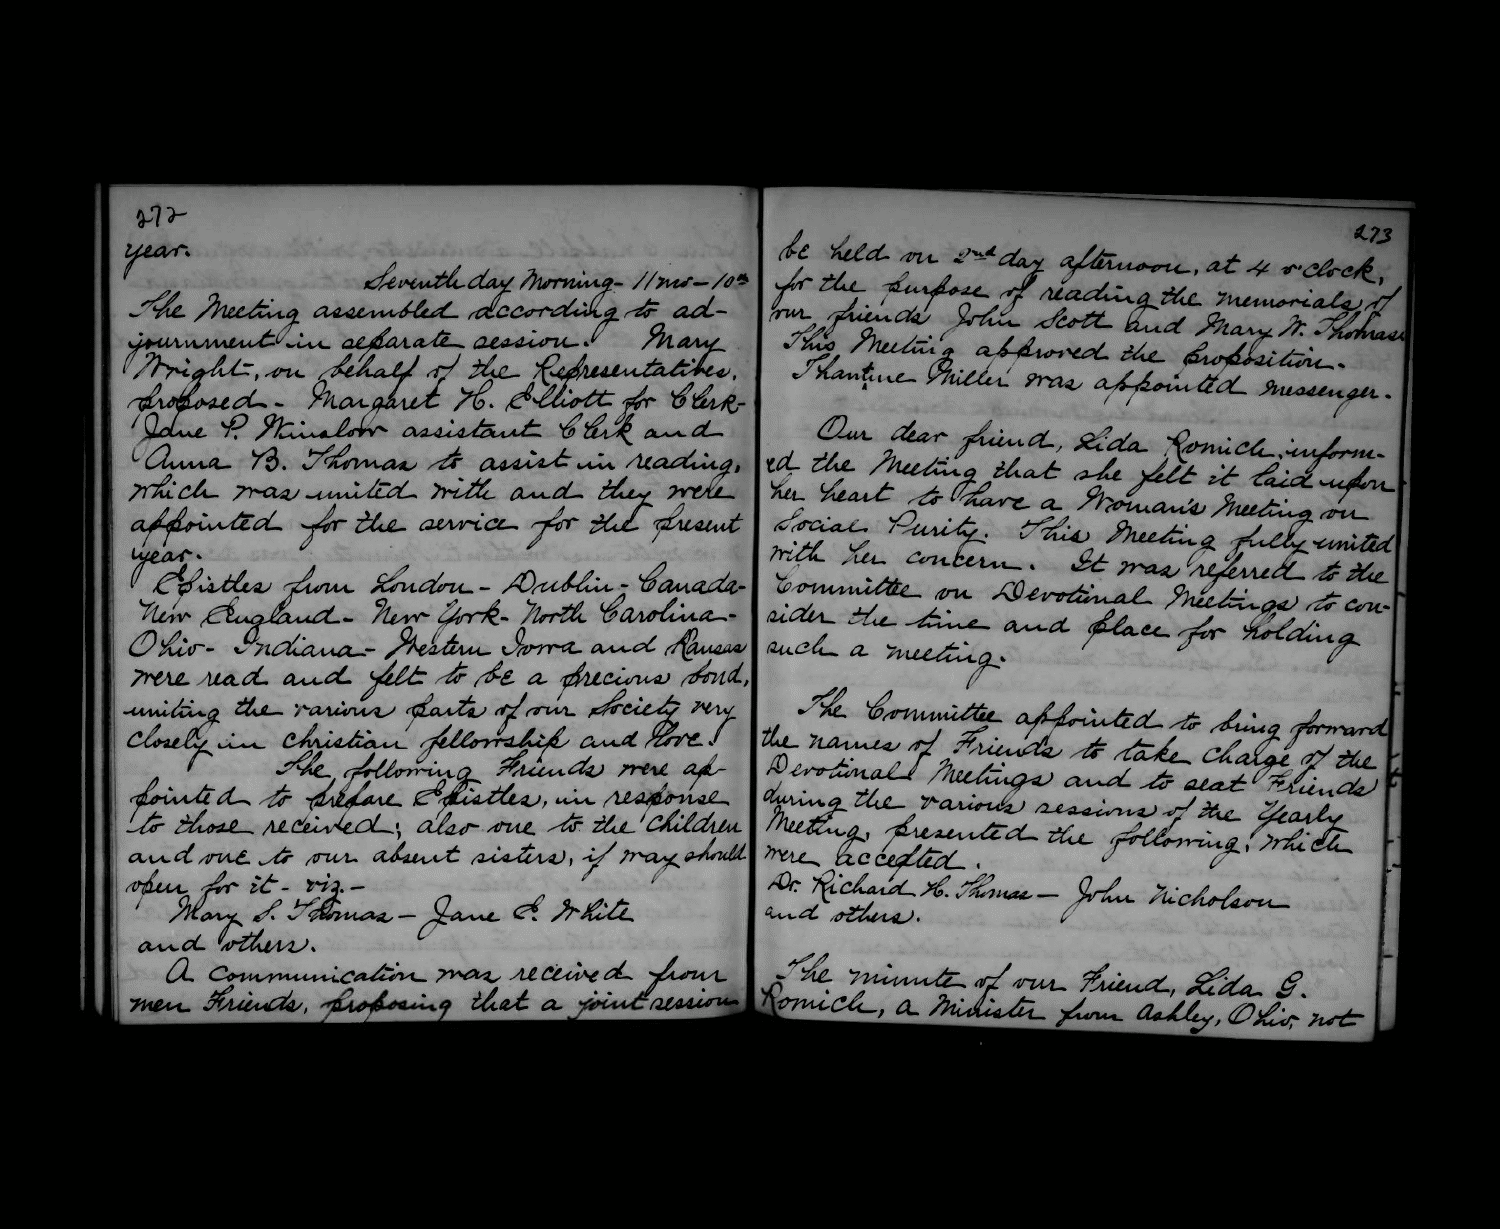 272
year.
Seventh day Morning - 11 mo - 10th
The Meeting assembled according to ad-
journment in separate session. Mary
Wright, on behalf of the Representatives,
proposed - Margaret H. Elliott for Clerk -
Jane P. Winslow assistant Clerk and
Anna B. Thomas to assist in reading,
which was united with and they were
appointed for the service for the present
year.
Epistles from London - Dublin - Canada -
New England - New York - North Carolina -
Ohio - Indiana - Western Iowa and Kansas
were read and felt to be a precious bond,
uniting the various parts of our Society very
closely in christian fellowship and love.
The following Friends were ap-
pointed to prepare Epistles, in response
to those received; also one to the children
and one to our absent sisters, if way should
open for it - viz. -
Mary S. Thomas - Jane E. White
and others.
A communication was received from
men Friends, proposing that a joint session
273
be held on 2nd day afternoon, at 4 o'clock,
for the purpose of reading the memorials of
our friends John Scott and Mary W. Thomas
This Meeting approved the proposition.
Miller was appointed messenger.
Our dear friend, Lida Romich, inform-
ed the Meeting that she felt it laid upon
her heart to have a Woman's Meeting on
Social Purity. This Meeting fully united
with her concern. It was referred to the
Committee on Devotional Meetings to con-
sider the time and place for holding
such a meeting.
The Committee appointed to bring forward
the names of Friends to take charge of the
Devotional Meetings and to seat Friends
during the various sessions of the Yearly
Meeting, presented the following, which
were accepted.
Dr. Richard H. Thomas - John Nicholson
and others.
The minute of our Friend, Lida G.
Romich, a Minister from Ashley, Ohio, not